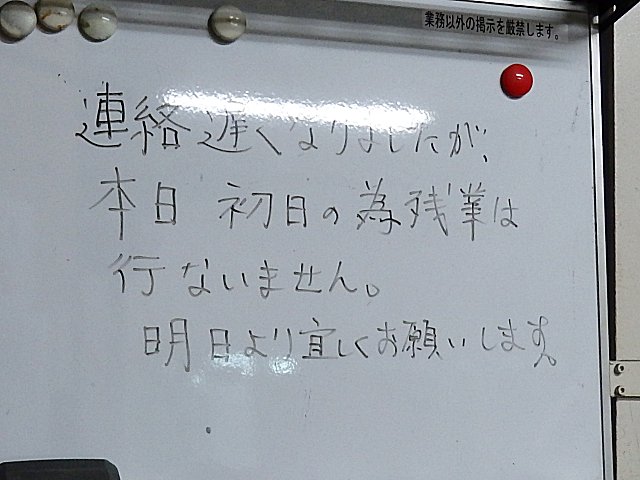 業務以外の掲示を厳禁します。
連絡遅くなりましたが、
本日 初日の為残業は
行ないません。
明日より宜しくお願いします。